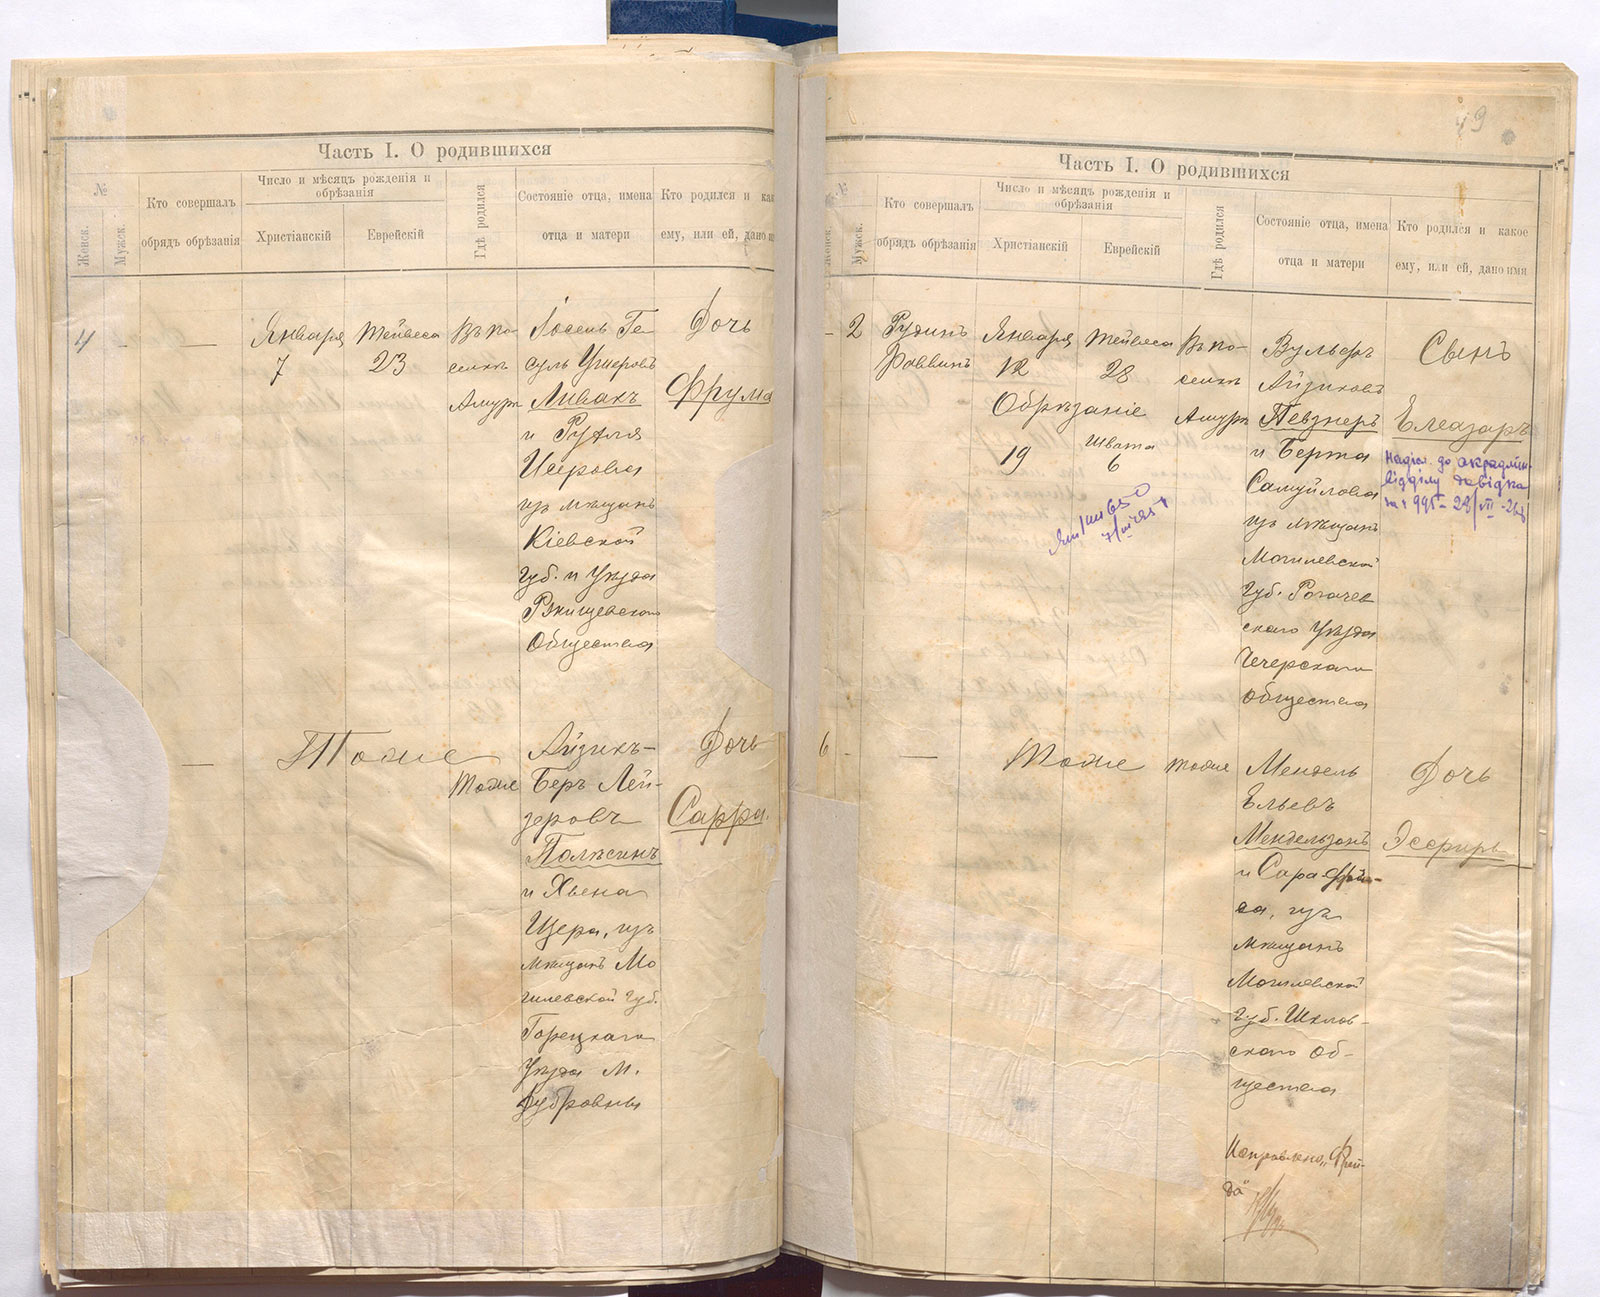 Часть I. О родившихся
№
Женск.
Мужск.
Кто совершалъ
обрядъ обрѣзанія
Число и мѣсяцъ рожденія и
обрѣзанія
Христіанскій
Еврейскій
Гдѣ родился
Состояніе отца, имена
отца и матери
Кто родился и как
ему, или ей, дано им
4
—
—
Января
7
Тейвеса
23
Въ по-
селкѣ
Амурѣ
Іосель Ге-
суль Ушеровъ
Ливакъ
и Рухля
из мѣщанъ
Кіевской
Губ. и Уѣзда
Ржищевскаго
Общества
Дочь
Фрума
—
Тоже
Тоже
Айзикъ-
Беръ Лей-
зеровъ
и Хьена
из
мѣщанъ Мо
гилевской Губ.
Горецкаго
Уѣзда М.
Дубровны
Дочь
Сарра.
49
Часть I. О родившихся
№
Женск.
Мужск.
Кто совершалъ
обрядъ обрѣзанія
Число и мѣсяцъ рожденія и
обрѣзанія
Христіанскій
Еврейскій
Гдѣ родился
Состояніе отца, имена
отца и матери
Кто родился и какое
ему, или ей, дано имя
2
Рудинъ
Раввинъ
Января
12
Обрѣзаніе
19
Тейвеса
28
Швата
6
Въ по-
селкѣ
Амурѣ
Вульфъ
Айзиковъ
Певзнеръ
и Берта
Самуйлова
из мѣщанъ
Могилевской
Губ. Рогачев
скаго Уѣзда
Чечерскаго
общества
Сынъ
Елеазаръ
до
відділу довідка
6
—
Тоже
тоже
Мендель
Ельевъ
Мендельзонъ
и Сара
из
мѣщанъ
Могилевской
Губ. Шклов-
скаго Об-
щества
Дочь
Эсфирь
Исправлено „Фрей-
да"